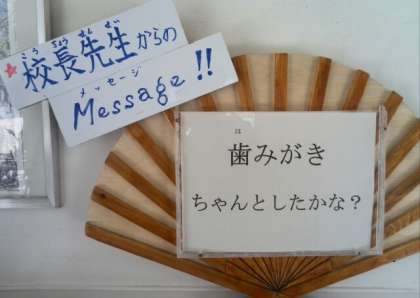 こうちょうせんせい
校長先生からの
メッセージ
Message!!
は
歯みがき
ちゃんとしたかな？